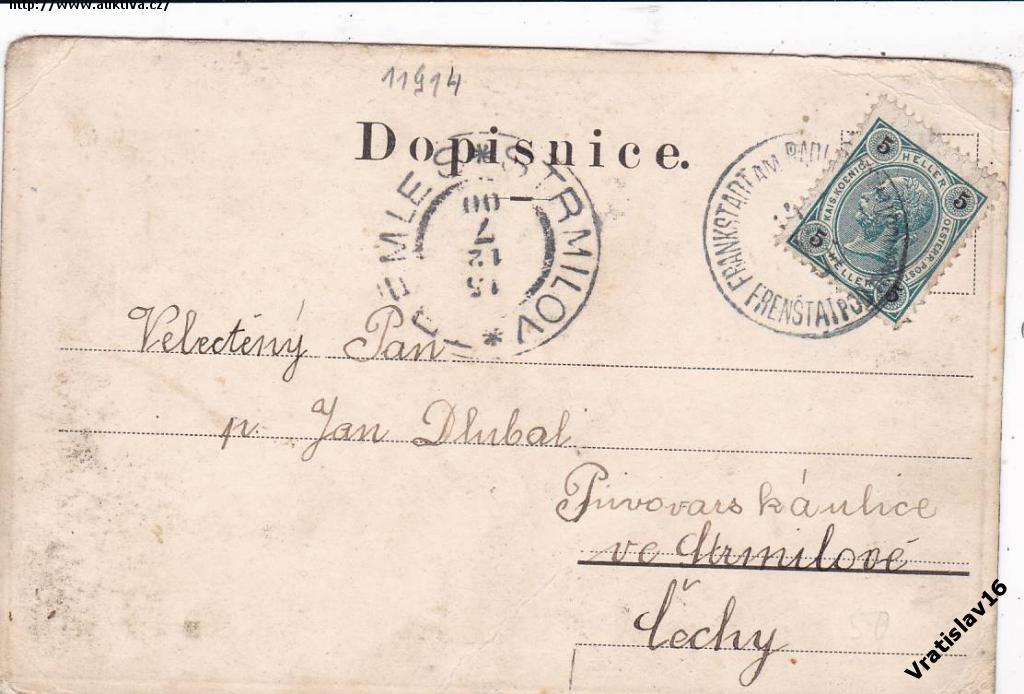 http://www.auktiva.cz/
11914
Dopisnice.
STRMILOV
15
12
7
00
FRANKSTADT AM RAD
FRENŠTAT P
5 HELLER 5
KAIS. KOENIGL.
OESTERR. POST
5 HELLER 5
Velectěný Pan
p. Jan Dlubal
Pivovarská ulice
ve Strmilové
Čechy
50
Vratislav16